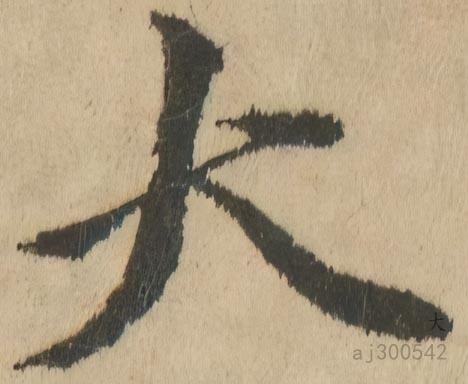 大
大
aj300542